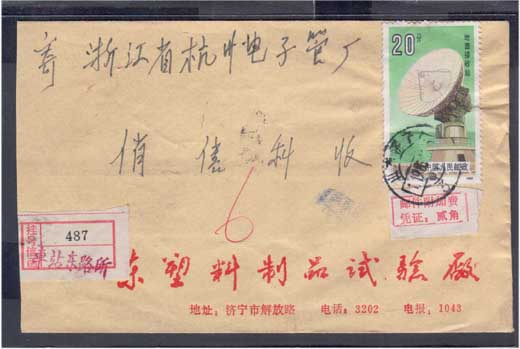 寄 浙江省杭州电子管厂
销售科收
20分
地面接收站
中国人民邮政
邮件附加费
凭证：贰角
6
挂号信函
487
车站东路所
东塑料制品试验厰
地址：济宁市解放路 电话：3202 电报：1043